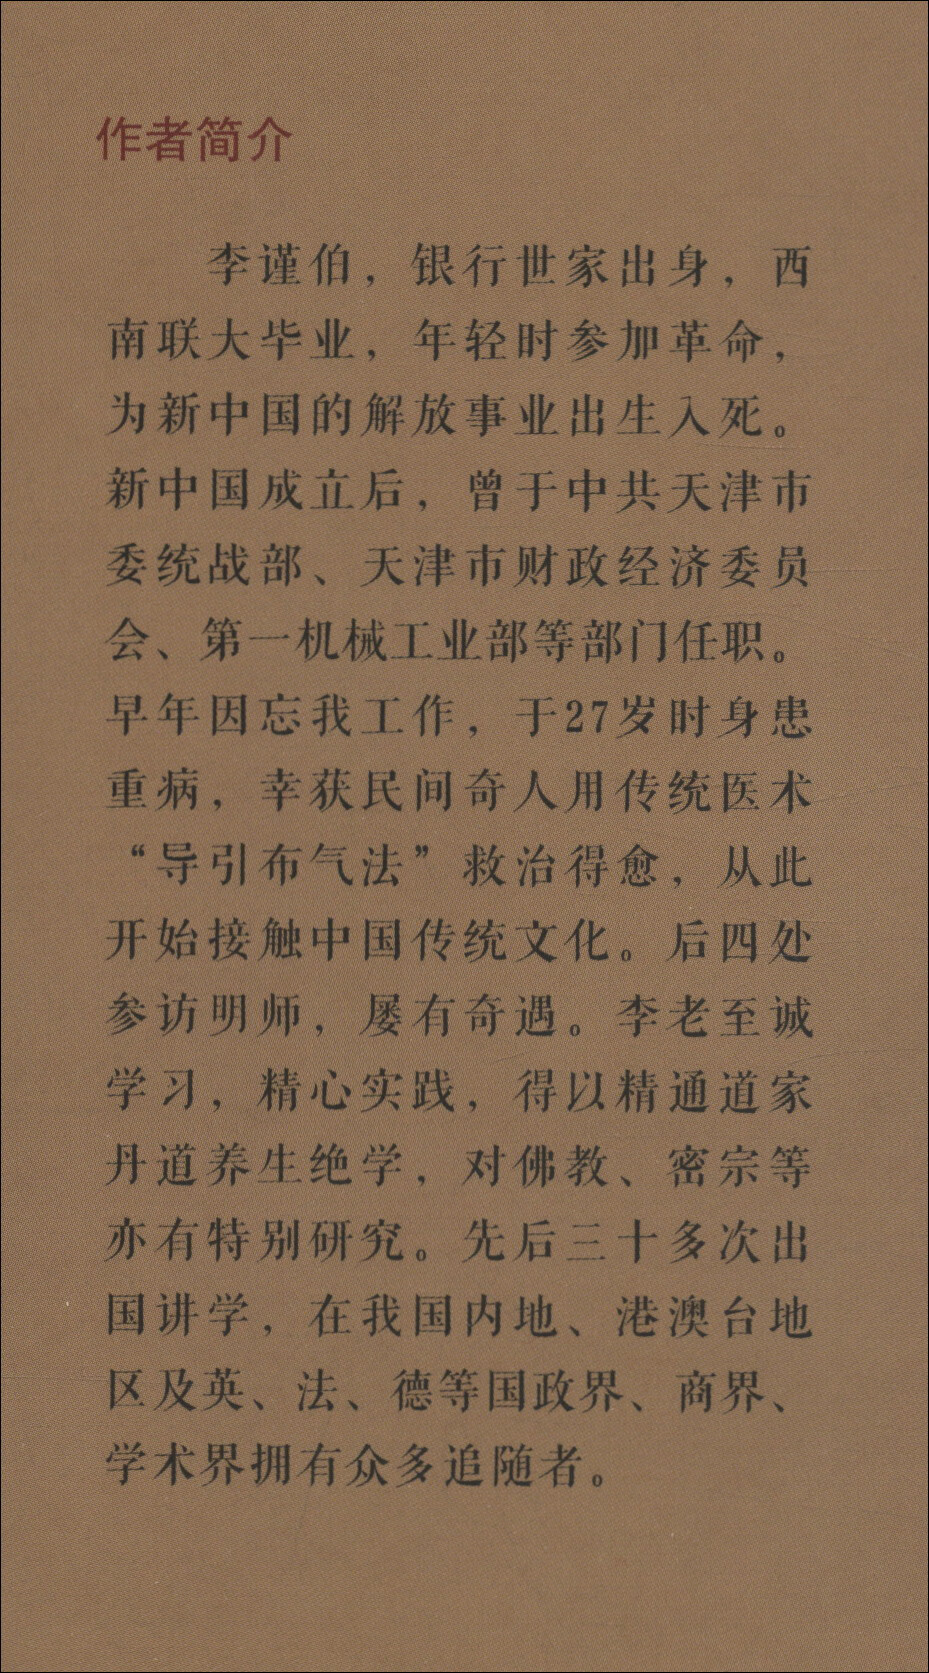 作者简介
李谨伯，银行世家出身，西
南联大毕业，年轻时参加革命，
为新中国的解放事业出生入死。
新中国成立后，曾于中共天津市
委统战部、天津市财政经济委员
会、第一机械工业部等部门任职。
早年因忘我工作，于27岁时身患
重病，幸获民间奇人用传统医术
“导引布气法”救治得愈，从此
开始接触中国传统文化。后四处
参访明师，屡有奇遇。李老至诚
学习，精心实践，得以精通道家
丹道养生绝学，对佛教、密宗等
亦有特别研究。先后三十多次出
国讲学，在我国内地、港澳台地
区及英、法、德等国政界、商界、
学术界拥有众多追随者。